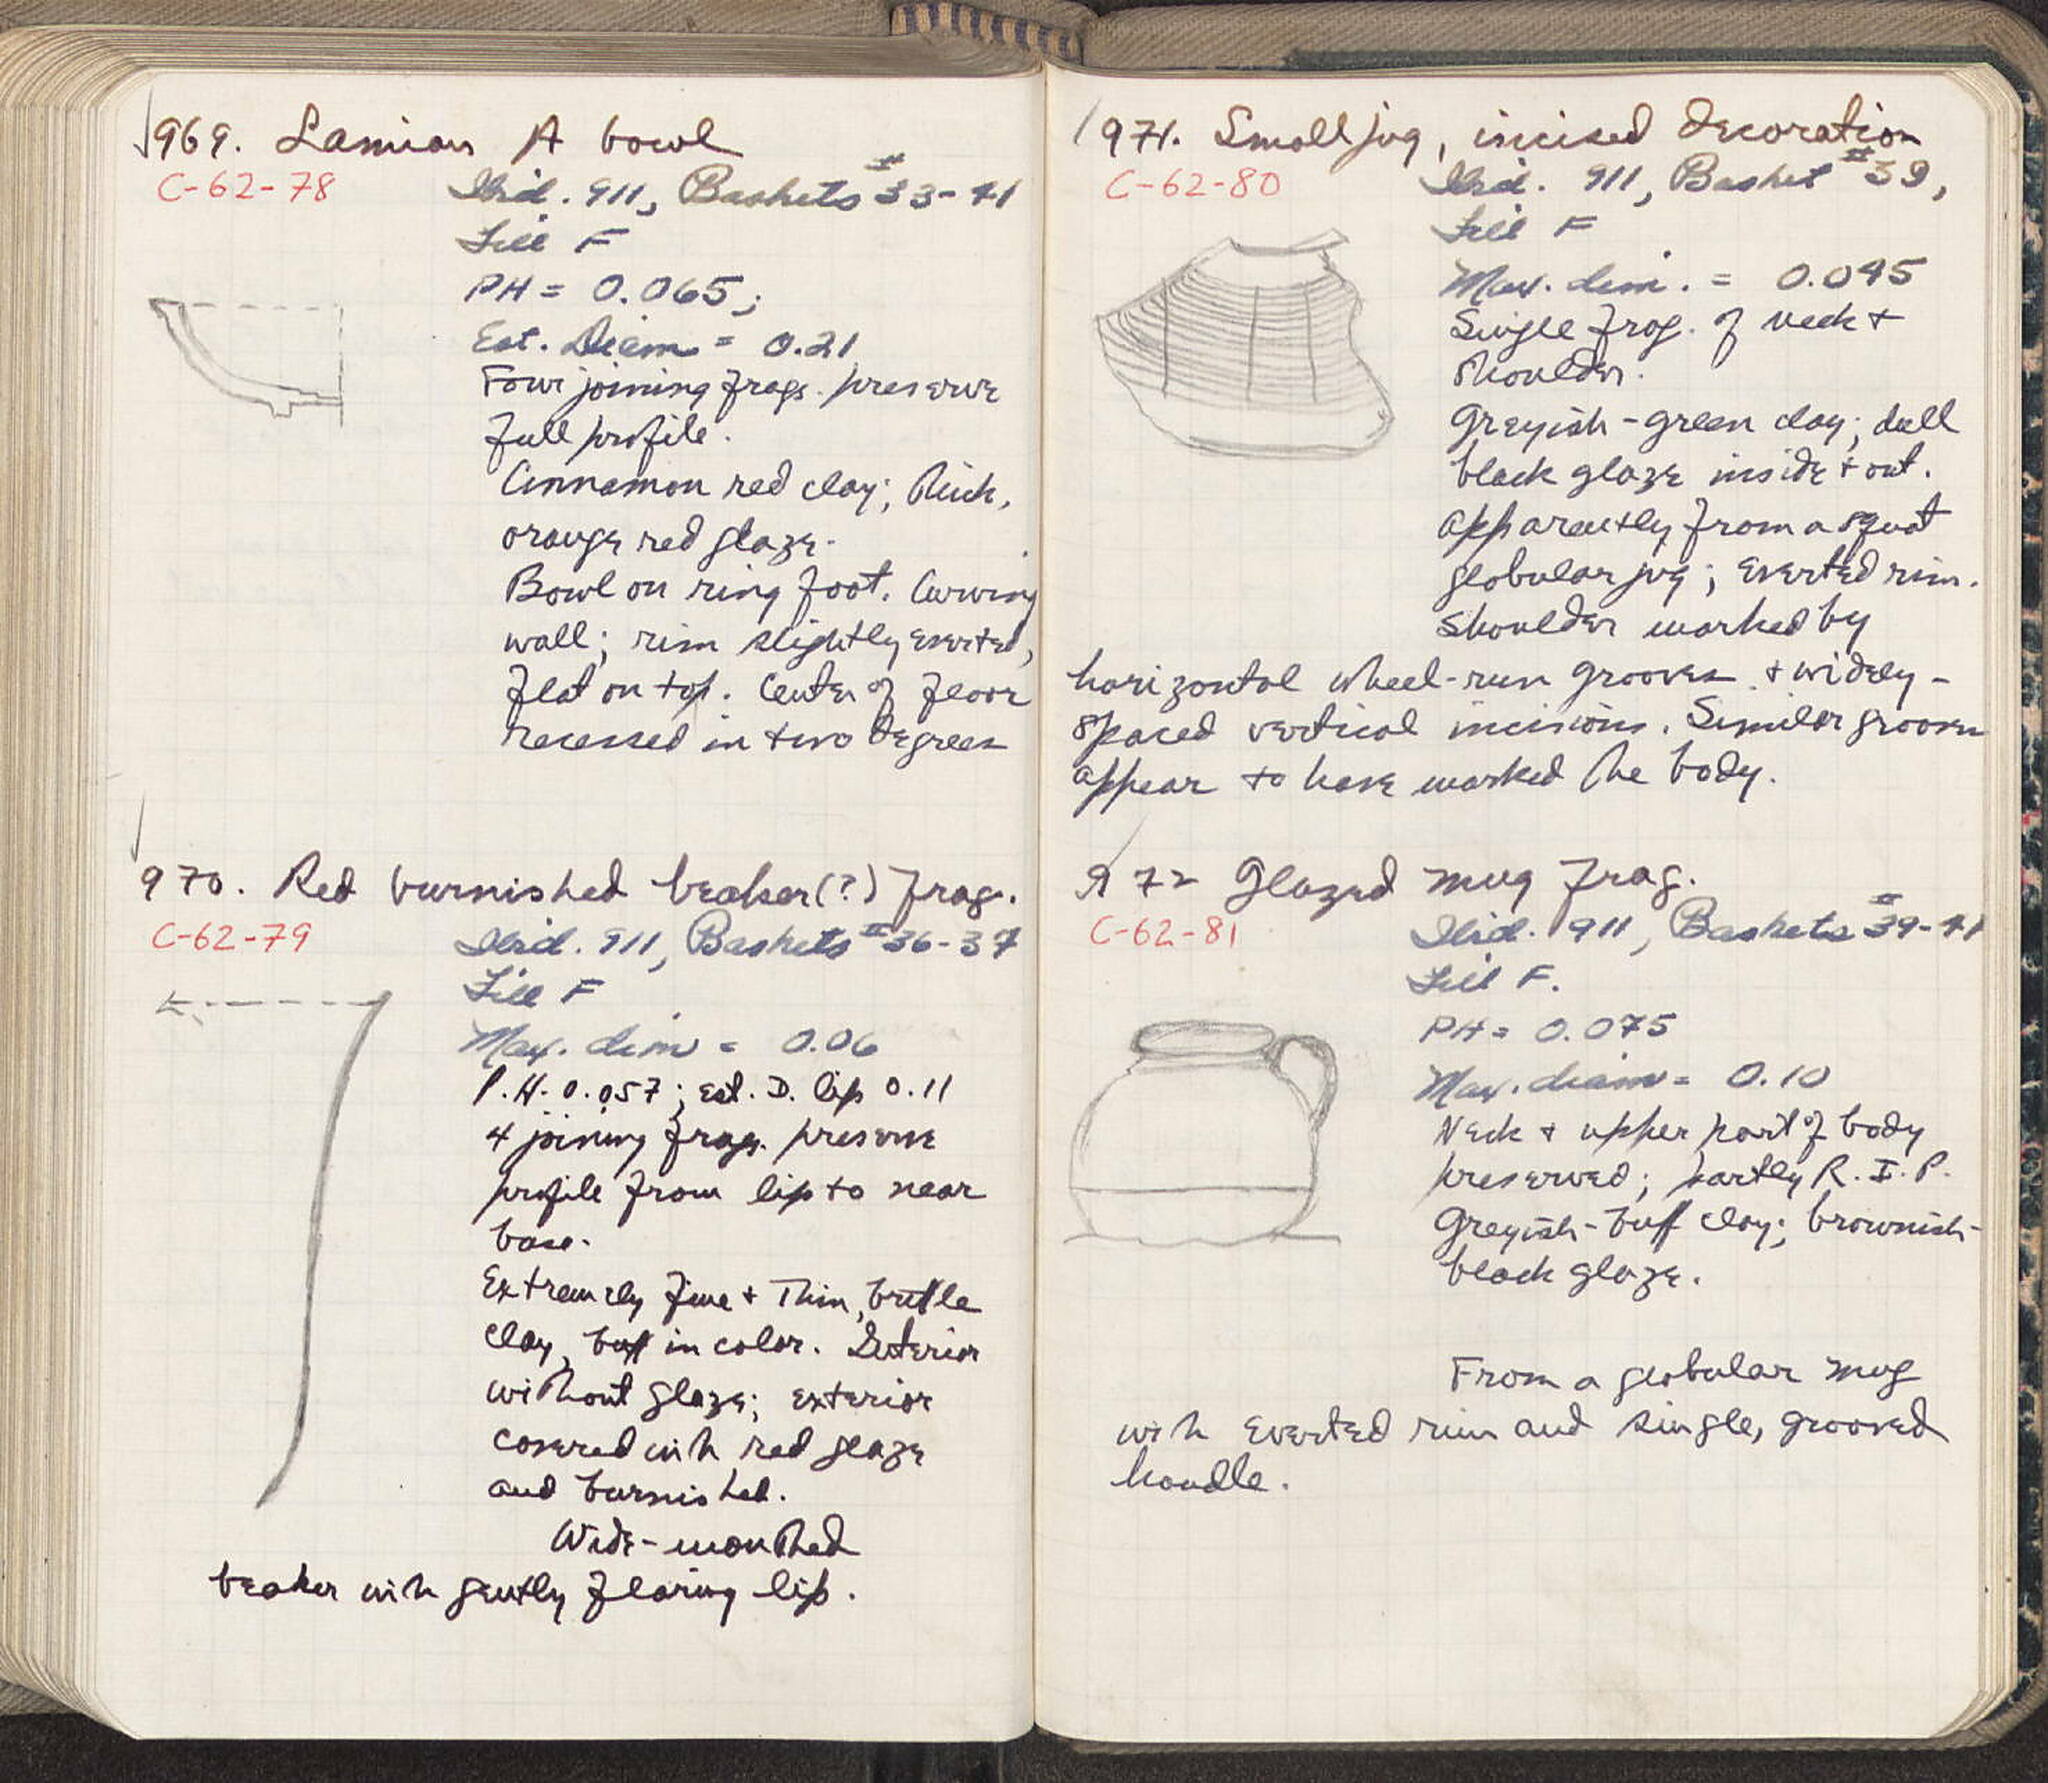 969. Samian A bowl
C-62-78
Ibid. 911, Baskets #33-41
Fill F
PH = 0.065;
Est. Diam = 0.21
Four joining frags. preserve
full profile.
Cinnamon red clay; thick,
orange red glaze.
Bowl on ring foot. Curving
wall; rim slightly everted,
flat on top. Center of floor
recessed in two degrees
970. Red burnished beaker(?) frag.
C-62-79
Ibid. 911, Baskets #36-37
Fill F
Max. dim = 0.06
P.H. 0.057; est. D. lip 0.11
4 joining frags. preserve
profile from lip to near
base.
Extremely fine + thin, brittle
clay, buff in color. Interior
without glaze; exterior
covered with red glaze
and burnished.
Wide-mouthed
beaker with gently flaring lip.
971. Small jug, incised decoration
C-62-80
Ibid. 911, Basket #39,
Fill F
Max. dim. = 0.095
Single frag. of neck +
shoulder.
Greyish-green clay; dull
black glaze inside + out.
Apparently from a squat
globular jug; everted rim.
Shoulder marked by
horizontal wheel-run grooves + widely-
spaced vertical incisions. Similar grooves
appear to have marked the body.
972 Glazed mug frag.
C-62-81
Ibid. 911, Baskets #39-41
Fill F.
PH = 0.075
Max. diam = 0.10
Neck + upper part of body
preserved; partly R.I.P.
Greyish-buff clay; brownish-
black glaze.
From a globular mug
with everted rim and single, grooved
handle.